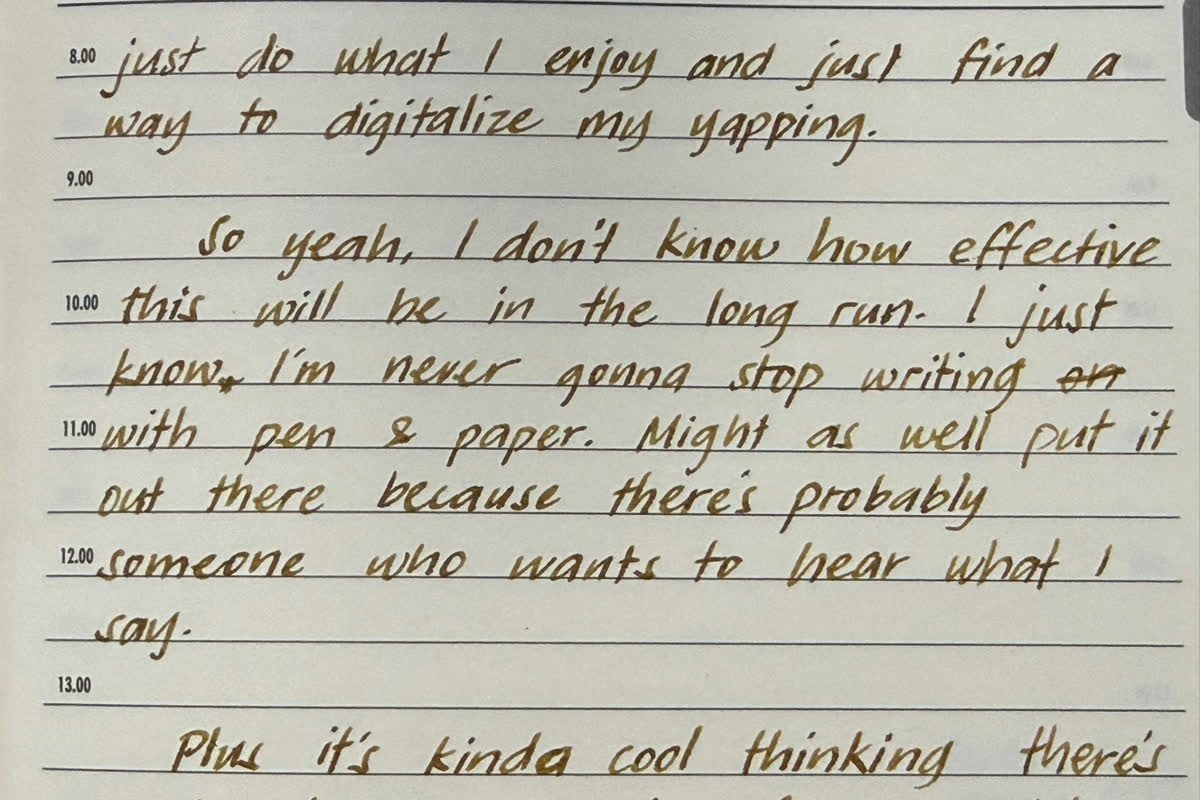 8.00 just do what I enjoy and just find a
way to digitalize my yapping.
9.00
So yeah, I don't know how effective
10.00 this will be in the long run. I just
know. I'm never gonna stop writing on
11.00 with pen & paper. Might as well put it
out there because there's probably
12.00 someone who wants to hear what I
say.
13.00
Plus it's kinda cool thinking there's